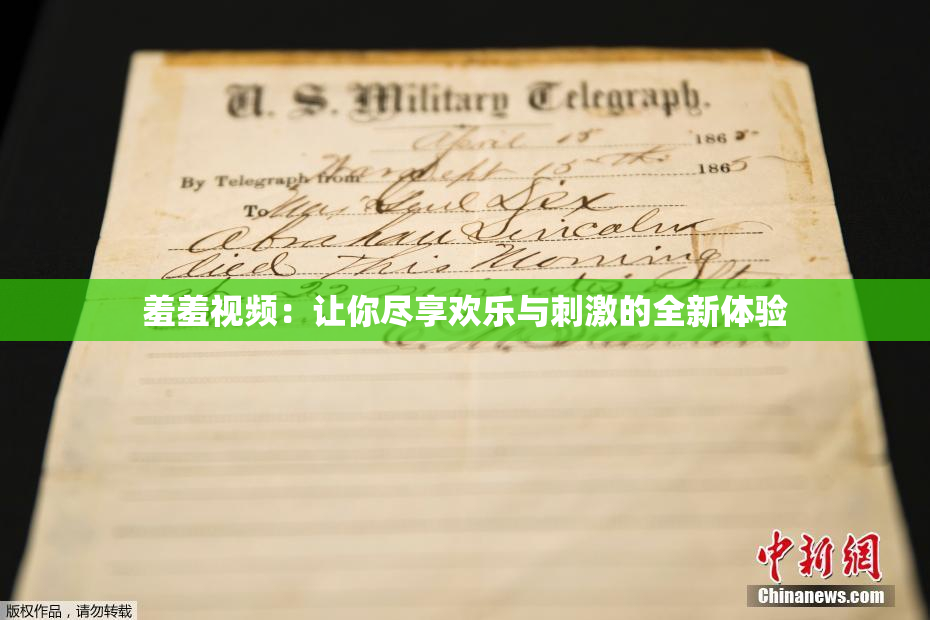 U. S. Military Telegraph.
April 15 1865
By Telegraph from War Dept 15th 1865
To Maj Genl Dix
Abraham Lincoln
died This Morning
at 22 minutes after
羞羞视频：让你尽享欢乐与刺激的全新体验
E. M. Stanton
中新网
Chinanews.com
版权作品，请勿转载